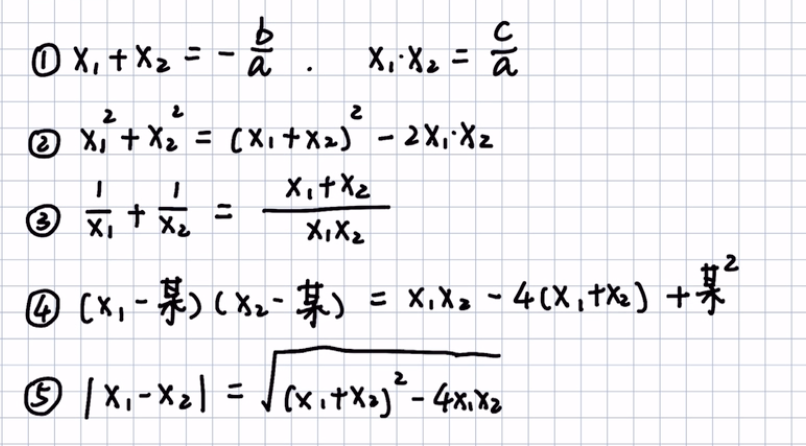 ① x₁+x₂ = -b/a . x₁·x₂ = c/a
② x₁²+x₂² = (x₁+x₂)² - 2x₁·x₂
③ 1/x₁ + 1/x₂ = (x₁+x₂)/(x₁x₂)
④ (x₁-某)(x₂-某) = x₁x₂ - 4(x₁+x₂) + 某²
⑤ |x₁-x₂| = √((x₁+x₂)² - 4x₁x₂)